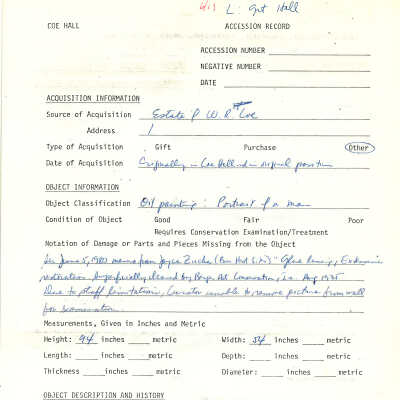 L: Grt Hall
COE HALL
ACCESSION RECORD
ACCESSION NUMBER
NEGATIVE NUMBER
DATE
ACQUISITION INFORMATION
Source of Acquisition Estate of W. R. Coe
Address /
Type of Acquisition Gift Purchase Other
Date of Acquisition Originally in Coe Hall in original position
OBJECT INFORMATION
Object Classification Oil painting: Portrait of a man
Condition of Object Good Fair Poor
Requires Conservation Examination/Treatment
Notation of Damage or Parts and Pieces Missing from the Object
See June 5, 1980 memo from Joyce Zucker
restoration. Superficially cleaned by Conservation, in Aug 1985
Due to staff limitations, Curator unable to remove picture from wall
for examination.
Measurements, Given in Inches and Metric
Height: 94 inches metric Width: 54 inches metric
Length: inches metric Depth: inches metric
Thickness inches metric Diameter: inches metric
OBJECT DESCRIPTION AND HISTORY